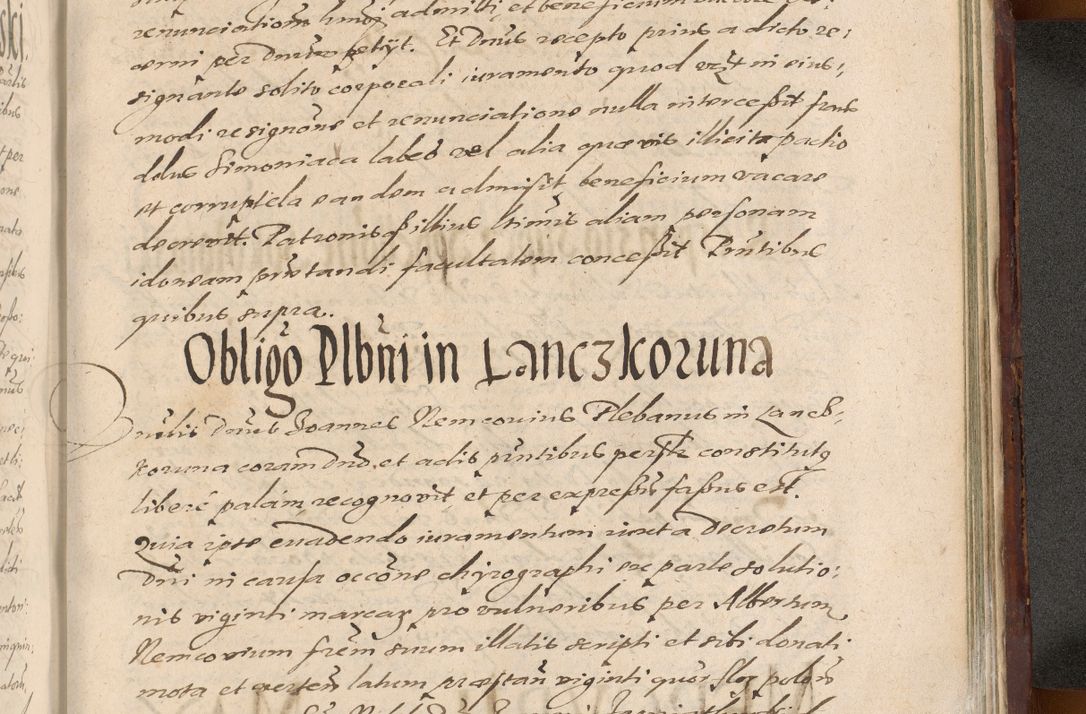 renunciationem hmoi admitti, et beneficium vacare de:
cerni per Dnum petijt. Et Dnus recepto prius a dicto re:
signante solito corporali iuramento quod vtz in eius:
modi resignone et renunciatione nulla intercessit fraus
dolus Simoniaca labes vel alia quævis illicita pactio
et corruptela eandem admisit beneficium vacare
decrevit. Patronis illius ltimis aliam personam
idoneam pntandi facultatem concessit Pntibus
quibus supra.
Obligo Plbni in Lanczkoruna
nibilis Dnus Joannes Nemcovius Plebanus in Lancz-
koruna coram Dno, et actis pntibus persltr constitutq
libere palam recognovit, et per expressu fassus est.
Quia ipse evadendo iuramentum iuxta Decretum
Dni in causa occone chyrographi ex parte solutio:
nis viginti marcar pro vulneribus per Albertum
Nemcovium frem suum illatis scripti et sibi donati
mota et verten latum præstan viginti quor flor polon